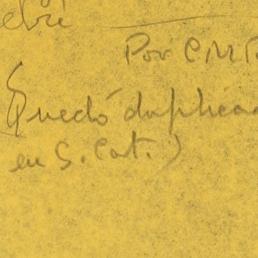 Por C M P
(Quedó duplicad
en S. Cat.)